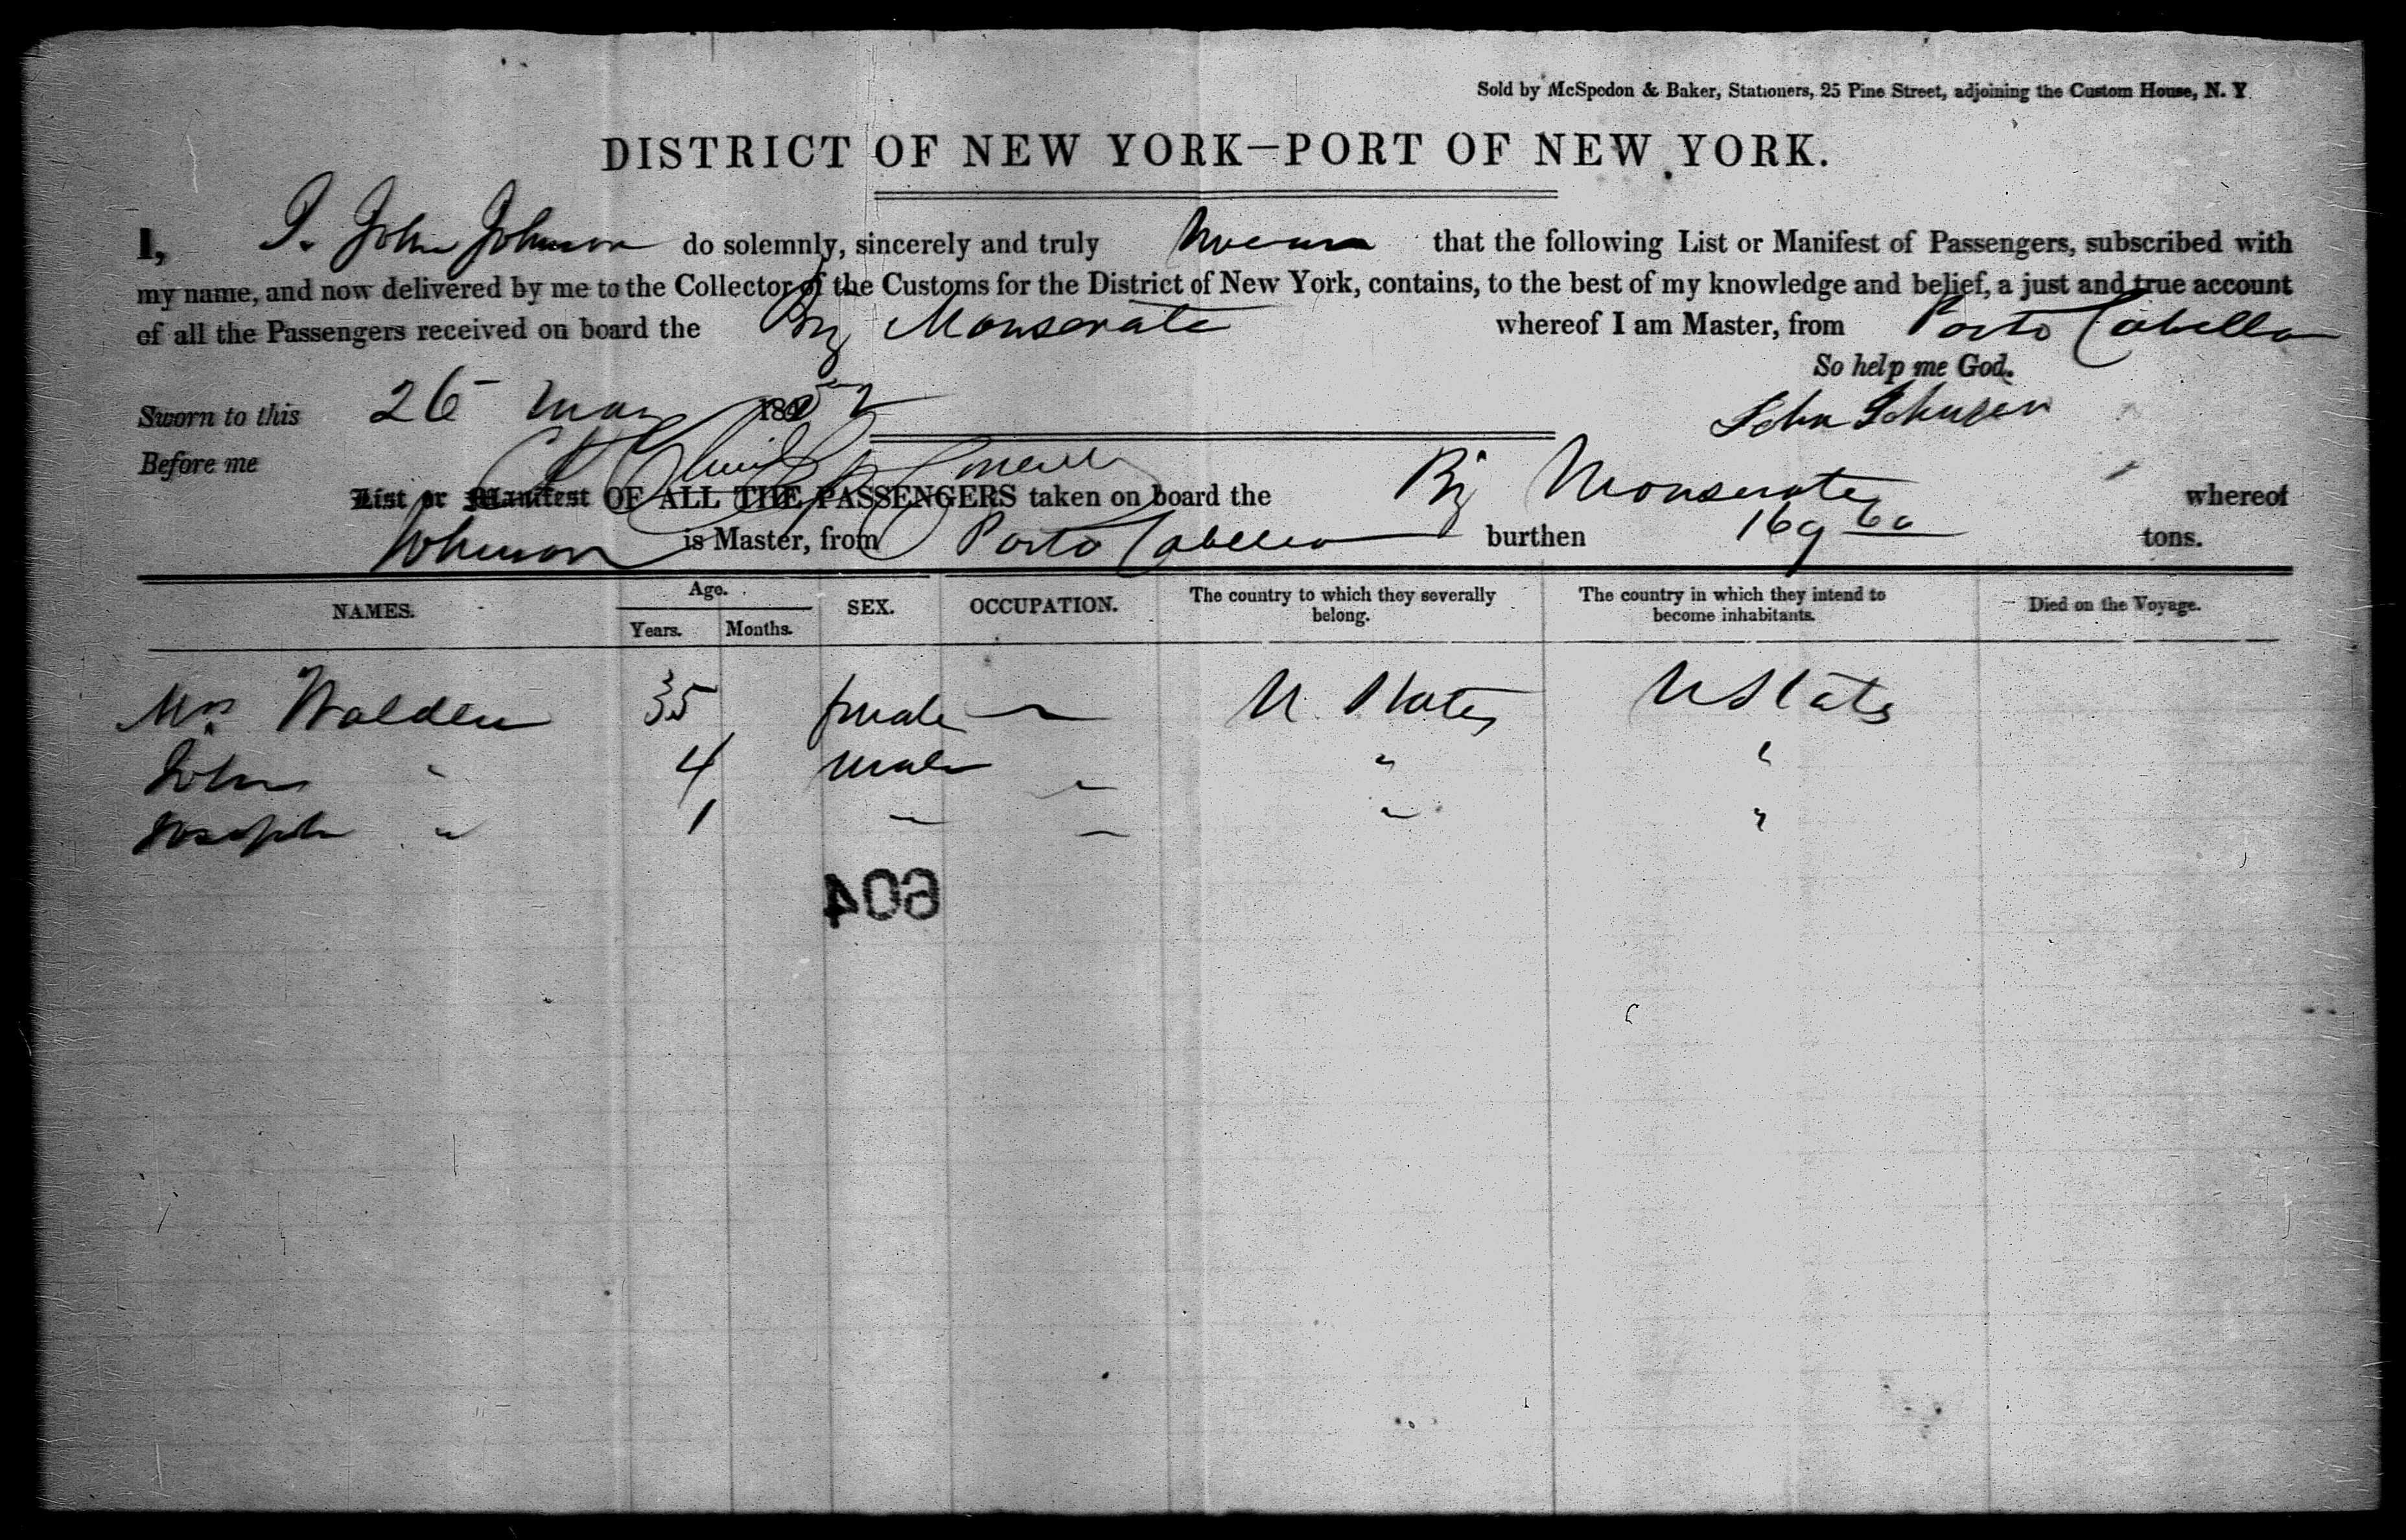 Sold by McSpedon & Baker, Stationers, 25 Pine Street, adjoining the Custom House, N. Y.
DISTRICT OF NEW YORK—PORT OF NEW YORK.
I, I. John Johnson do solemnly, sincerely and truly swear that the following List or Manifest of Passengers, subscribed with
my name, and now delivered by me to the Collector of the Customs for the District of New York, contains, to the best of my knowledge and belief, a just and true account
of all the Passengers received on board the Brig Monserate whereof I am Master, from Porto Cabello
So help me God.
Sworn to this 26 May 1852 John Johnson
Before me
List or Manifest OF ALL THE PASSENGERS taken on board the Brig Monserate whereof
Johnson is Master, from Porto Cabello burthen 169 60 tons.
NAMES. Age. Years. Months. SEX. OCCUPATION. The country to which they severally belong. The country in which they intend to become inhabitants. Died on the Voyage.
Mrs Walden 35 female — U. States U States
John " 4 male " " "
Joseph " 1 " " " "
604